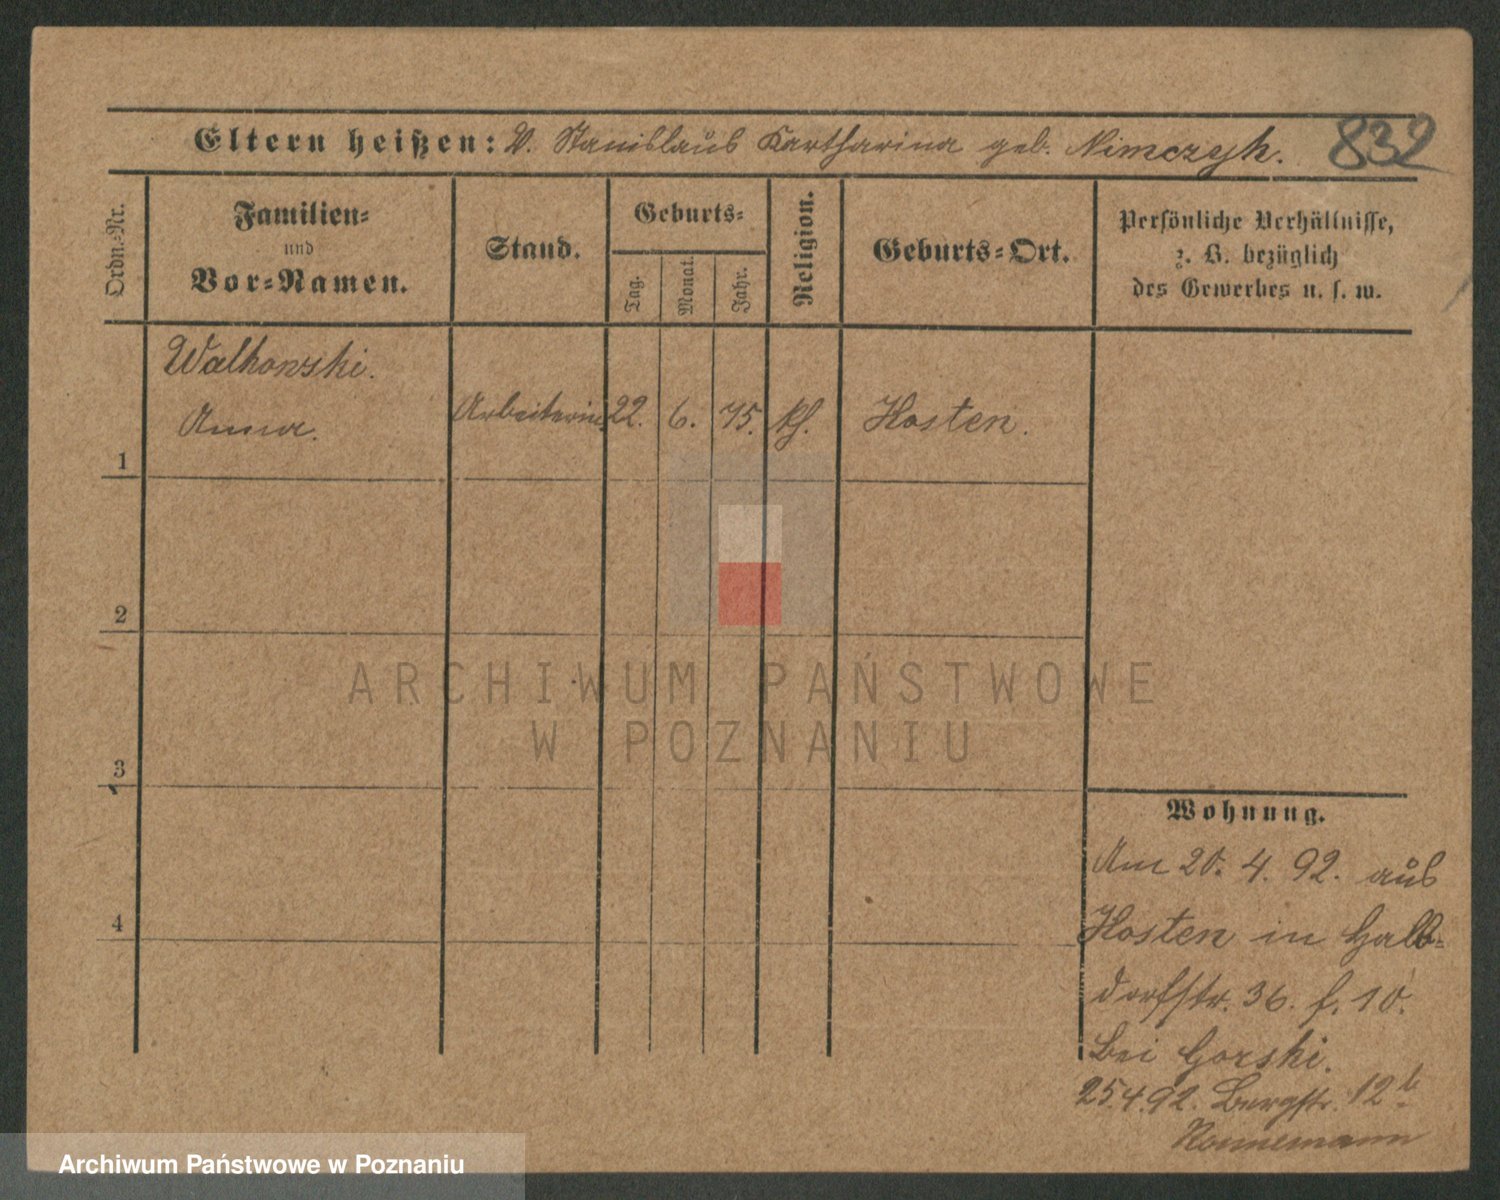 Eltern heißen: V. Stanislaus Kartharina geb. Nimczyk. 832
Ordn.-Nr.
Familien-
und
Vor-Namen.
Stand.
Geburts-
Tag.
Monat.
Jahr.
Religion.
Geburts-Ort.
Persönliche Verhältnisse,
z. B. bezüglich
des Gewerbes u. s. w.
Walkowski.
Anna. Arbeiterin 22. 6. 75. kh. Kosten.
1
2
3
4
ARCHIWUM PAŃSTWOWE
W POZNANIU
Wohnung.
Am 20. 4. 92. aus
Kosten in Halb-
dorfstr. 36. f. 10.
bei Gorski.
25.4.92. Bergstr. 12b
Archiwum Państwowe w Poznaniu